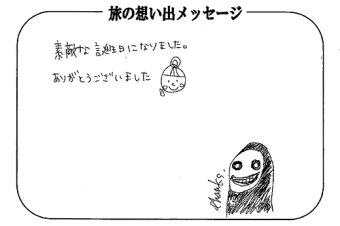 旅の想い出メッセージ
素敵な誕生日になりました。
ありがとうございました
thanks.